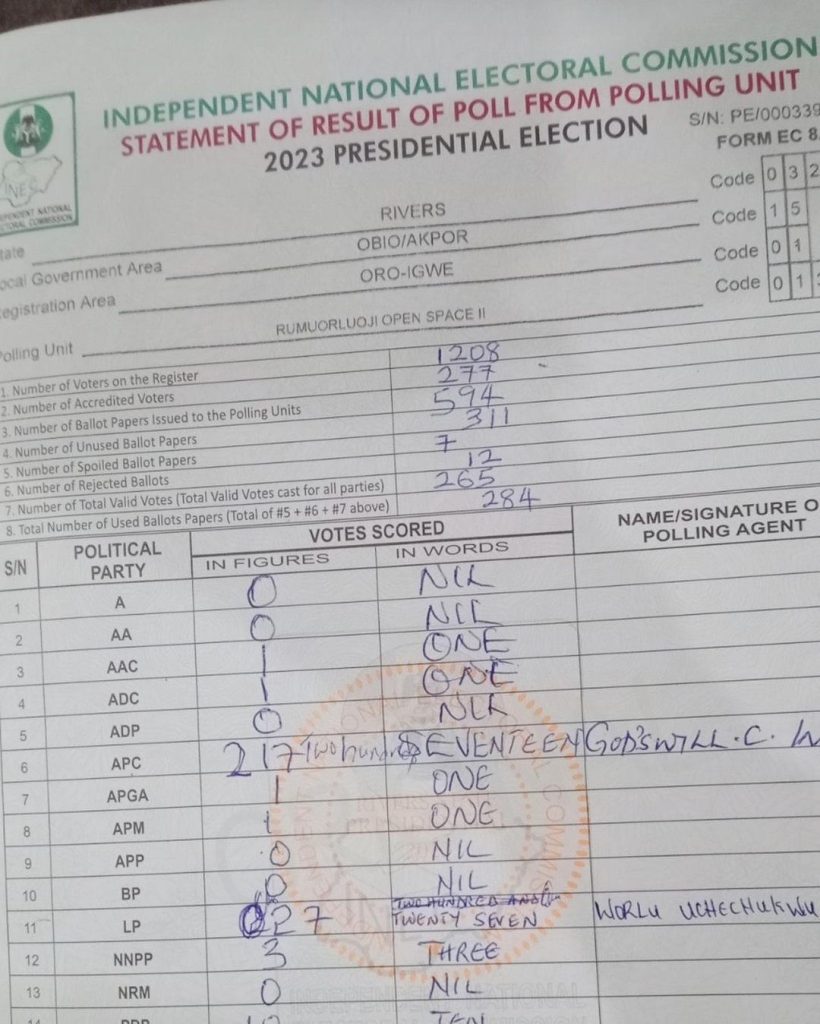 INDEPENDENT NATIONAL ELECTORAL COMMISSION
STATEMENT OF RESULT OF POLL FROM POLLING UNIT
2023 PRESIDENTIAL ELECTION
S/N: PE/000339
FORM EC 8
tate RIVERS Code 0 3 2
ocal Government Area OBIO/AKPOR Code 1 5
egistration Area ORO-IGWE Code 0 1
olling Unit RUMUORLUOJI OPEN SPACE II Code 0 1
1. Number of Voters on the Register 1208
2. Number of Accredited Voters 277
3. Number of Ballot Papers Issued to the Polling Units 594
4. Number of Unused Ballot Papers 311
5. Number of Spoiled Ballot Papers 7
6. Number of Rejected Ballots 12
7. Number of Total Valid Votes (Total Valid Votes cast for all parties) 265
8. Total Number of Used Ballots Papers (Total of #5 + #6 + #7 above) 284
S/N POLITICAL PARTY VOTES SCORED NAME/SIGNATURE O
POLLING AGENT
IN FIGURES IN WORDS
1 A 0 NIL
2 AA 0 NIL
3 AAC 1 ONE
4 ADC 1 ONE
5 ADP 0 NIL
6 APC 217 Two hundred SEVENTEEN GOD'SWILL.C.
7 APGA 1 ONE
8 APM 1 ONE
9 APP 0 NIL
10 BP 0 NIL
11 LP 27 TWO HUNDRED AND
TWENTY SEVEN WORLU UCHECHUKWU
12 NNPP 3 THREE
13 NRM 0 NIL
10 TEN